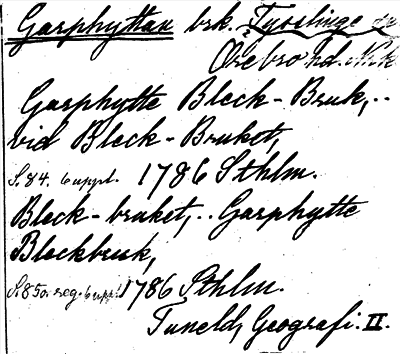 Garphyttan brk. Tysslinge sn
Örebro hd. Nrk
Garphytte Bleck-Bruk,..
vid Bleck-Bruket,
S. 84. 6 uppl. 1786 Sthlm.
Bleck-bruket,.. Garphytte
Bleckbruk,
S. 850. reg. 6 uppl. 1786 Sthlm.
Tuneld, Geografi. II.